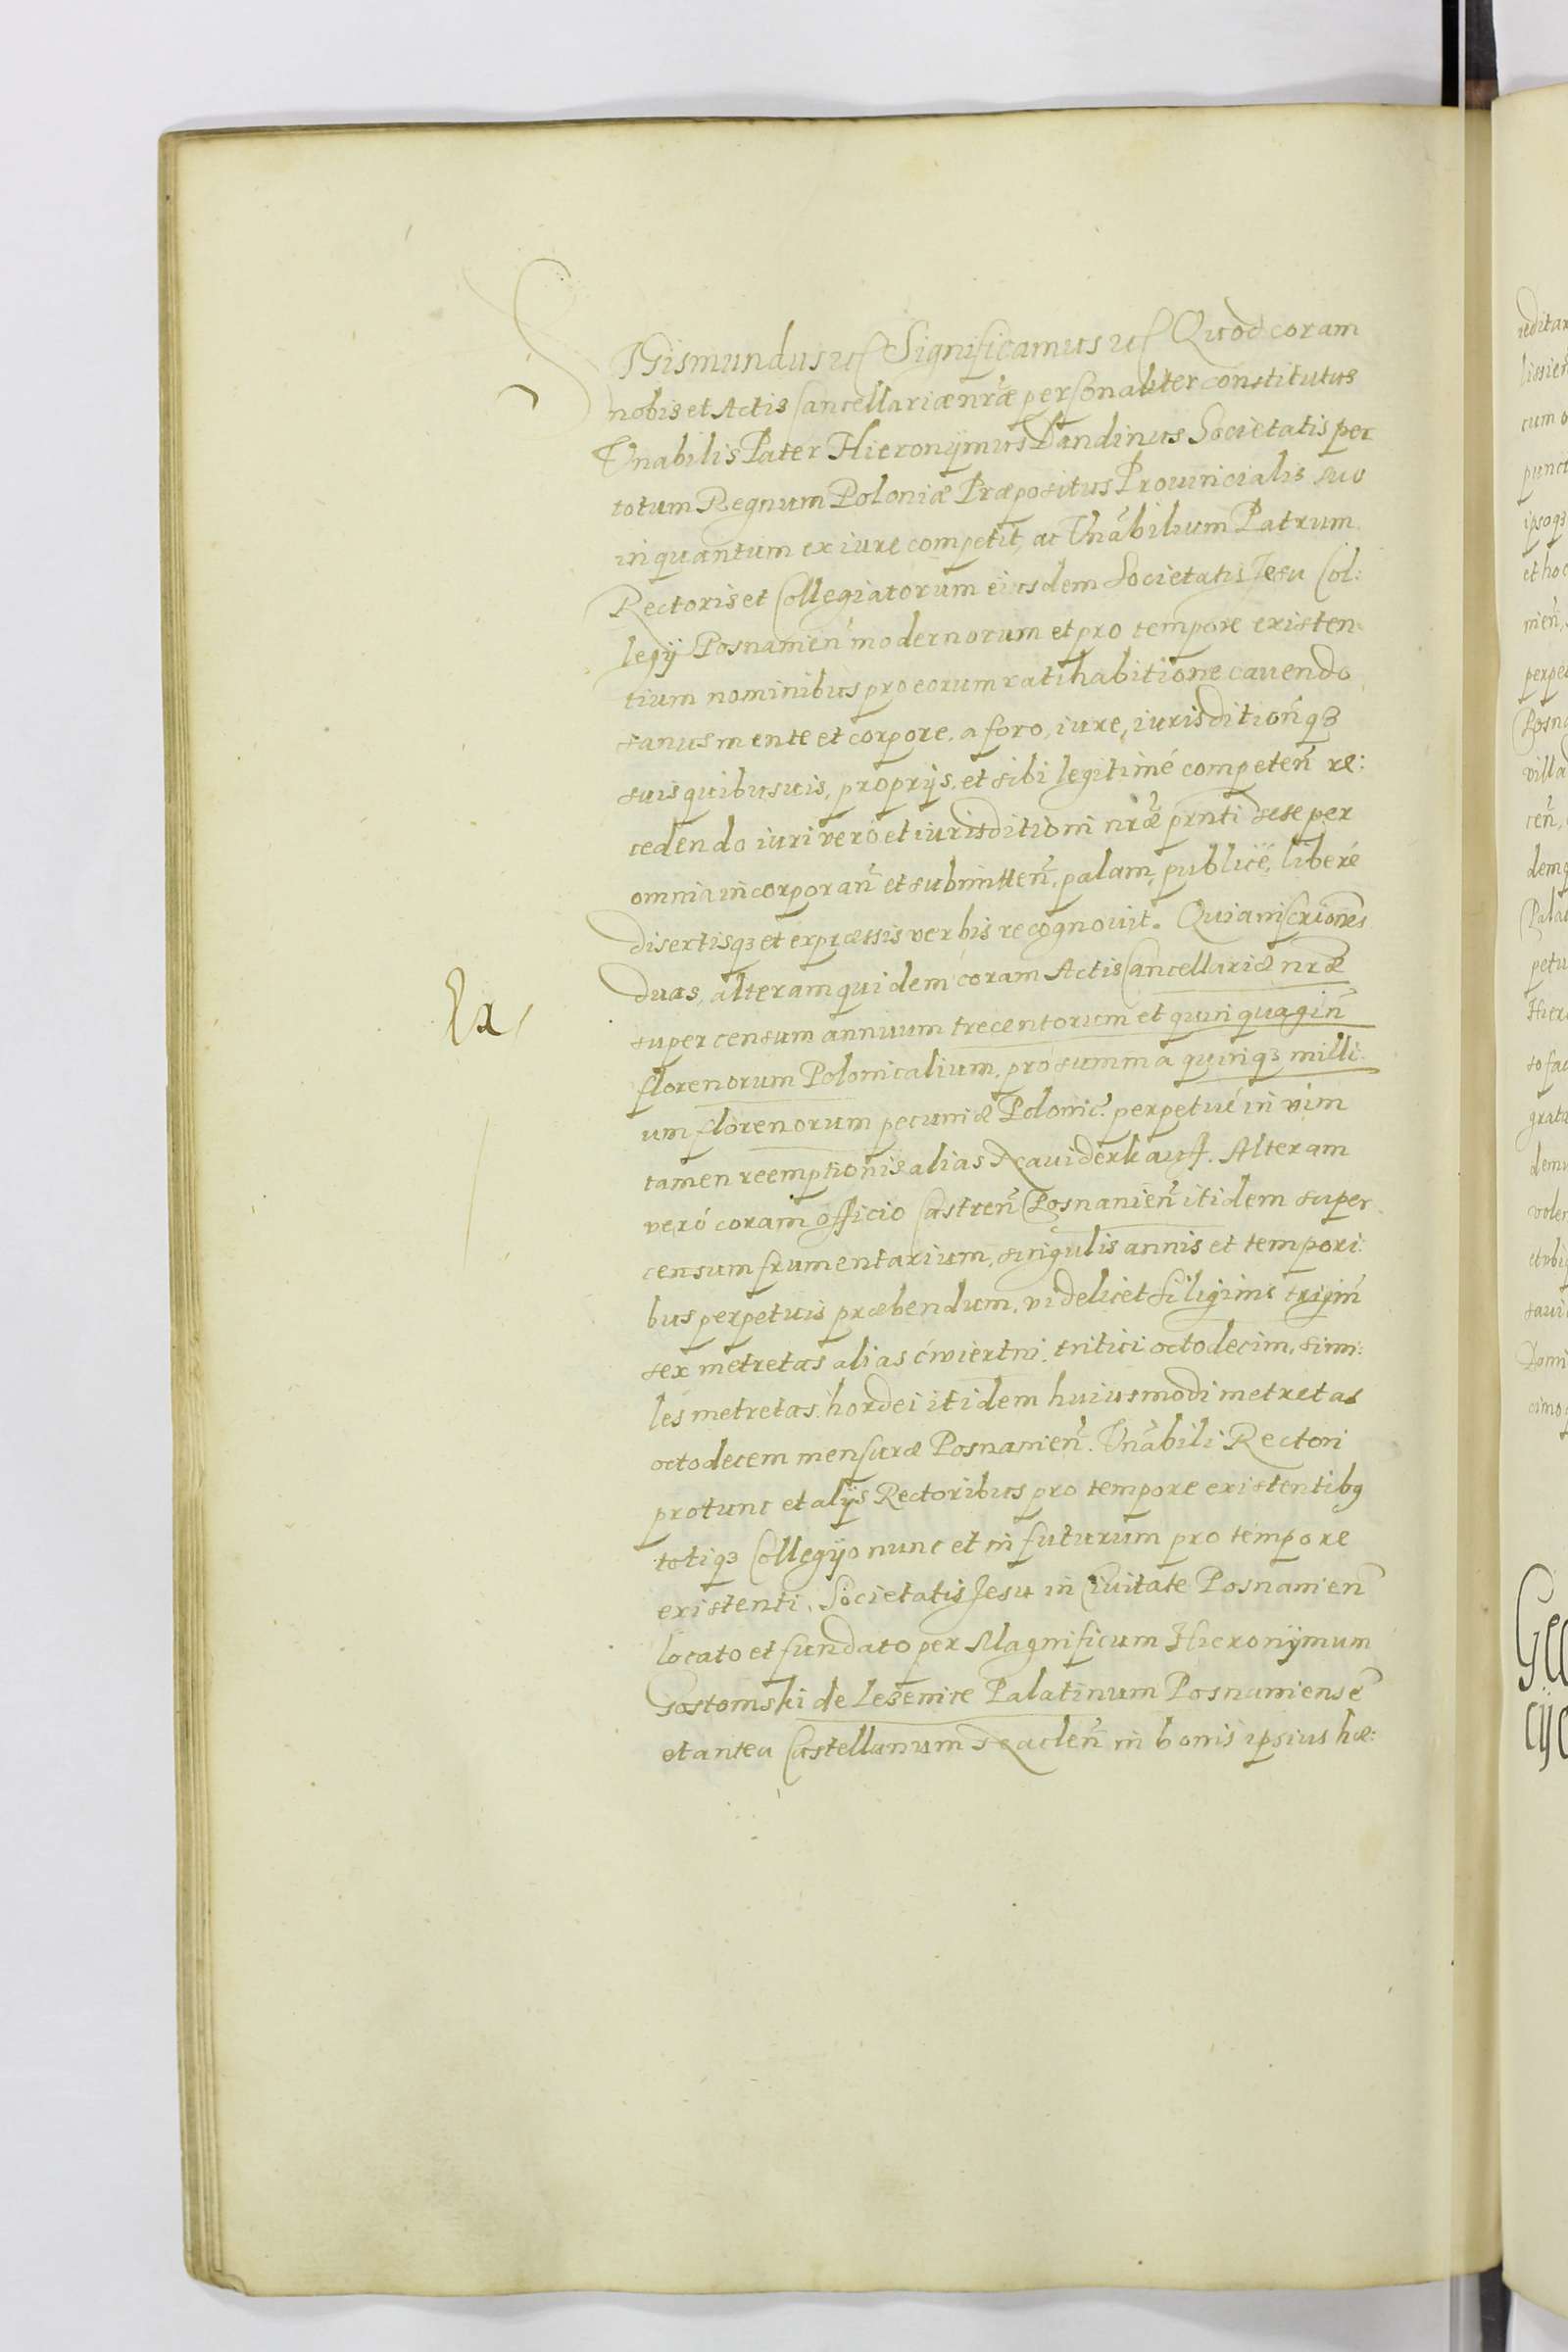 SIGismundus etc Significamus etc Quod coram
nobis et Actis Cancellariæ nr̃æ personaliter constitutus
Vnabilis Pater Hieronÿmus Dandinus Societatis per
totum Regnum Poloniæ Præpositus Prouincialis suo
in quantum ex iure competit, ac Vnãbilium Patrum
Rectoris et Collegiatorum eiusdem Societatis Jesu Col:
legÿ Posnanien̄ modernorum et pro tempore existen:
tium nominibus pro eorum ratihabitione cauendo
sanus mente et corpore, a foro, iure, iurisditioñqꝫ
suis quibusuis, proprÿs, et sibi legitimé competeñ re:
cedendo iuri veró et iurisditioni nr̃æ prñti sese per
omnia incorporañ et submitteñ, palam, publicé, liberé
disertisqꝫ et expræssis verbis recognouit. Quia inscriones
duas, alteram quidem coram Actis Cancellariæ nræ
Ex
super censum annuum trecentorum et quinquagiñ
florenorum Polonicalium, pro summa quinqꝫ milli:
um florenorum pecuniæ Poloniĉ perpetué in vim
tamen reemptionis alias Na viderkauff. Alteram
veró coram officio Castreñ Posnanieñ itidem super
censum frumentarium, singulis annis et tempori:
bus perpetuis præbendum, videlicet siliginis trigiñ
sex metretas alias ćwiertni, tritici octodecim, simi:
les metretas, hordei itidem huiusmodi metretas
octodecem mensuræ Posnanieñ. Vnãbili Rectori
protunc et alÿs Rectoribus pro tempore existentibꝰ
totiqꝫ Collegÿo nunc et in futurum pro tempore
existenti, Societatis Jesu in Ciuitate Posnanieñ
locato et fundato per Magnificum Hieronÿmum
Gostomski de Lezenice Palatinum Posnaniensẽ
et antea Castellanum Nacleñ in bonis ipsius hæ: